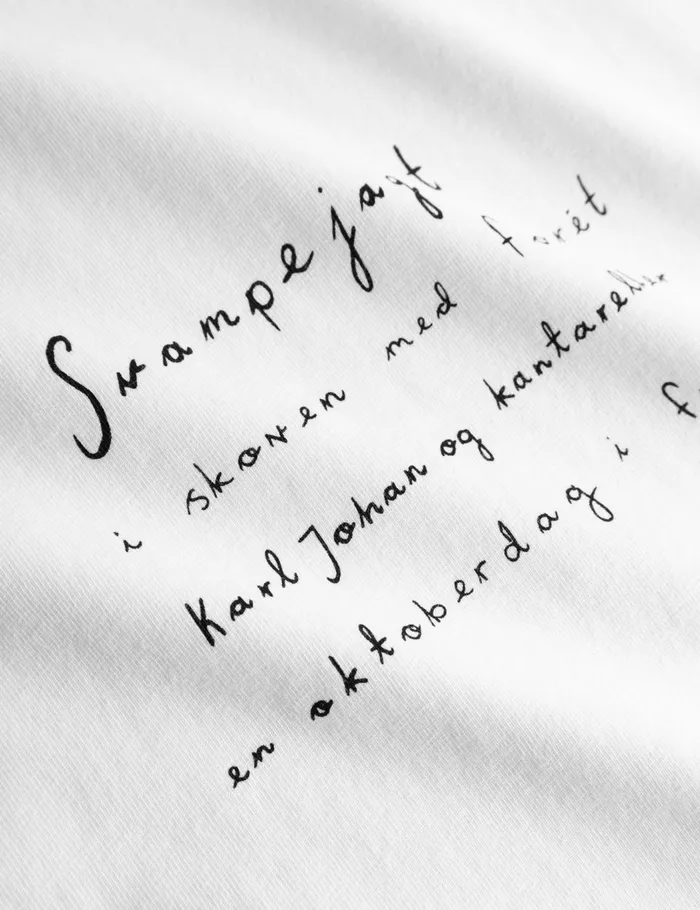 Svampejagt
i skoven med forét
Karl Johan og kantarel
en oktoberdag i